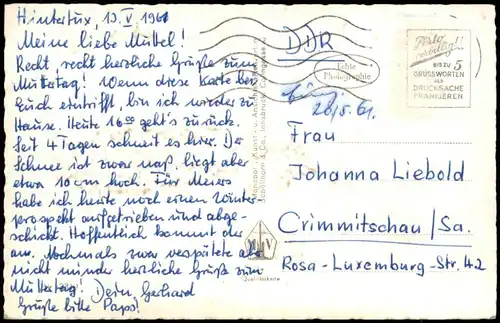 Hintertux, 13.V.1961
Meine liebe Muttel!
Recht, recht herzliche Grüße zum
Muttertag! Wenn diese Karte bei
Euch eintrifft, bin ich wieder zu
Hause. Heute 16⁰⁰ geht's zurück.
Seit 4 Tagen schneit es hier. Der
Schnee ist zwar naß, liegt aber
etwa 10 cm hoch. Für Meiers
habe ich heute noch einen Winter
prospekt aufgetrieben und abge-
schickt. Hoffentlich kommt der
an. Nochmals zwar verspätete aber
nicht minder herzliche Grüße zum
Muttertag! Dein Gerhard
Grüße bitte Paps!
Echte
Photographie
DDR
Porto
BIS ZU 5
GRUSSWORTEN
ALS
DRUCKSACHE
FRANKIEREN
28/5.61.
Frau
Johanna Liebold
Crimmitschau/Sa.
Rosa-Luxemburg-Str. 42